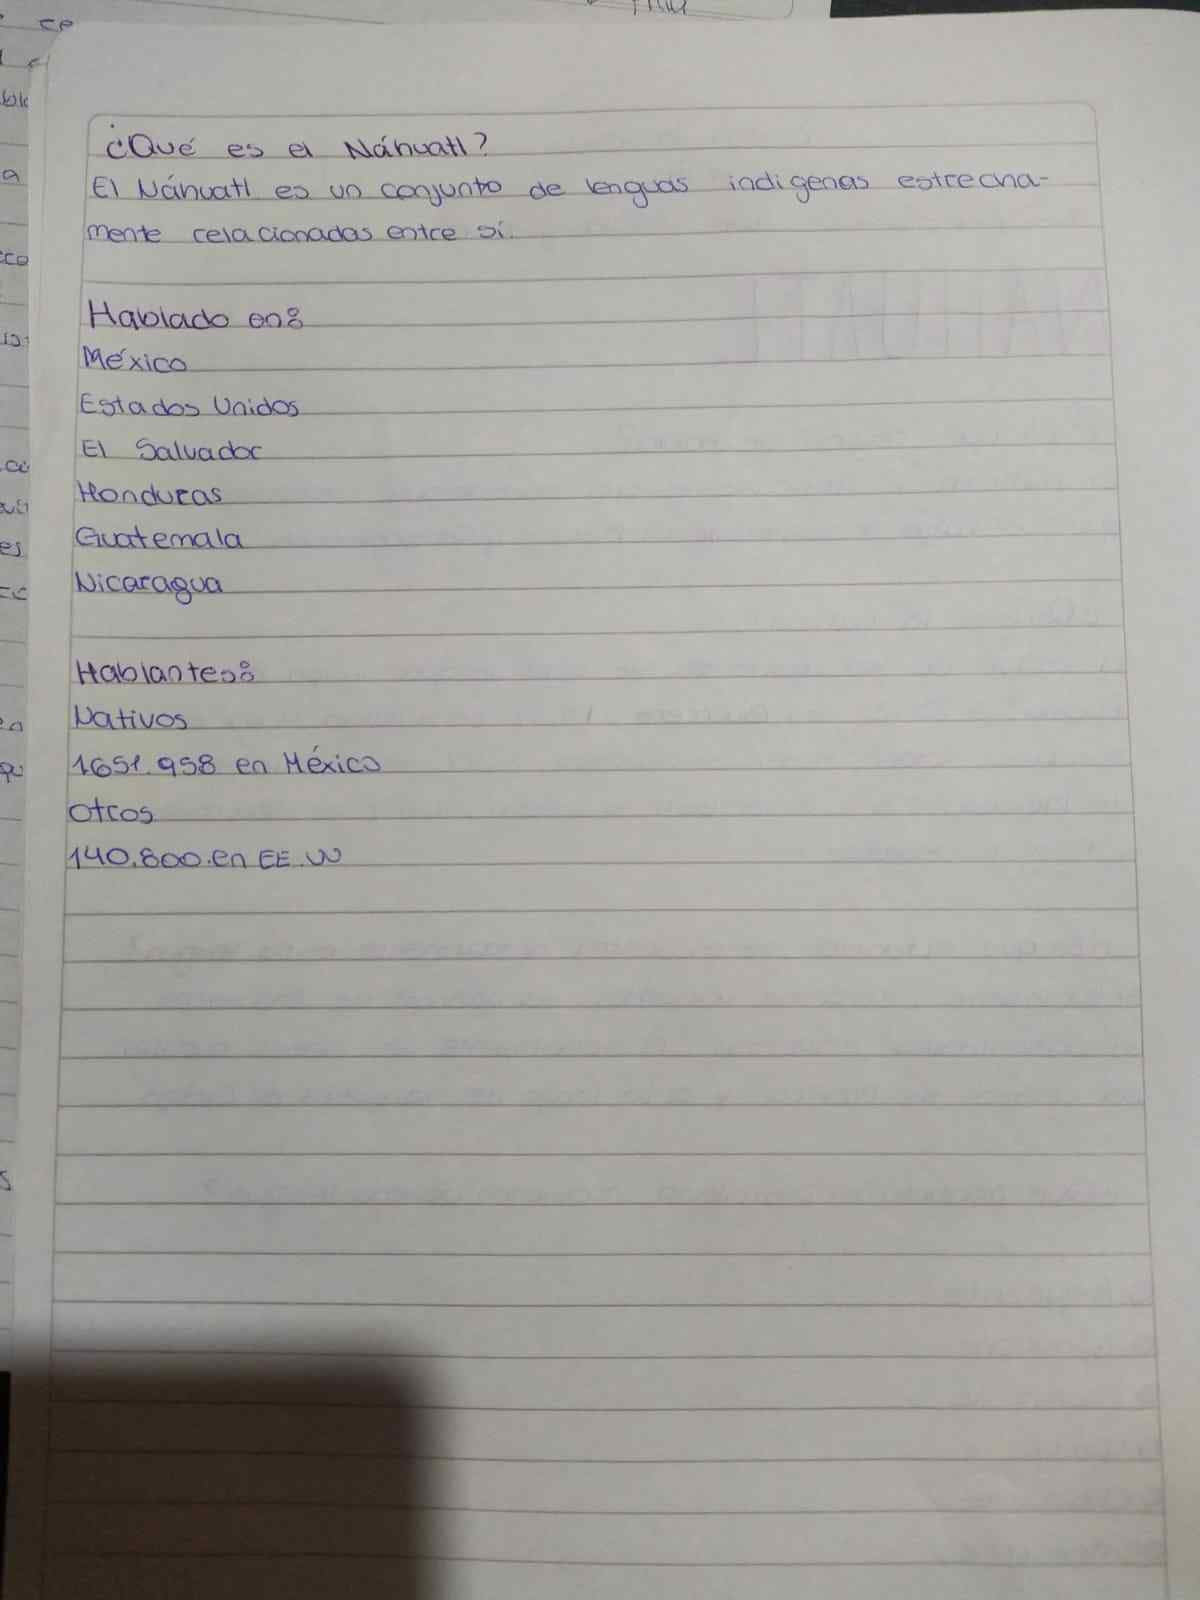 ¿Qué es el Náhuatl?
El Náhuatl es un conjunto de lenguas indigenas estrecha-
mente relacionadas entre sí.
Hablado en:
México
Estados Unidos
El Salvador
Honduras
Guatemala
Nicaragua
Hablantes:
Nativos
1651.958 en México
Otros
140.800.en EE.UU